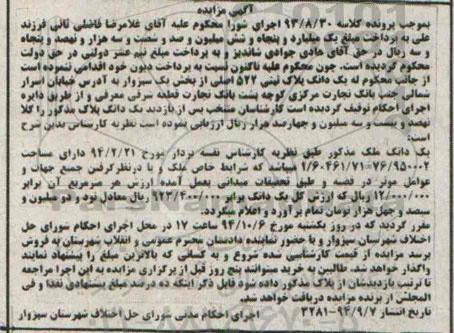 آگهی مزایده
بموجب پرونده کلاسه ۹۴/۸/۳۰ اجرای شورا محکوم علیه آقای غلامرضا فاضلی ثانی فرزند
علی به پرداخت مبلغ یک میلیارد و پنجاه و شش میلیون و صد و شصت و سه هزار و نهصد و پنجاه
و سه ریال در حق آقای هادی جوادی شاندیز و به پرداخت مبلغ نیم عشر دولتی در حق دولت
محکوم گردیده است. چون محکوم علیه تاکنون نسبت به پرداخت دیون خود اقدامی ننموده است
از جانب محکوم له یک دانگ پلاک ثبتی ۵۷۷ اصلی از بخش یک سبزوار به آدرس خیابان اسرار
شمالی جنب بانک تجارت مرکزی کوچه پشت بانک تجارت قطعه شرقی معرفی و از طریق دایره
اجرای احکام توقیف گردیده است کارشناسان منتخب پس از بازدید یک دانگ پلاک مذکور را کلا
نهصد و بیست و سه میلیون و چهارصد هزار ریال ارزیابی نموده است نظریه کارشناس بدین شرح
است:
یک دانگ ملک مذکور طبق نظریه کارشناس نقشه بردار مورخ ۹۴/۲/۲۱ دارای مساحت
۷۶/۹۵۰۰۰۲=۹/۶۰۴۶۱/۷۱ میباشد که شرایط خاص ملک و با درنظرگرفتن جمیع جهات و
عوامل موثر در قضیه و طبق تحقیقات میدانی بعمل آمده ارزش هر مترمربع آن برابر
۱۲/۰۰۰/۰۰۰ ریال که ارزش کل یک دانگ برابر ۹۲۳/۴۰۰/۰۰۰ ریال معادل نود و دو میلیون و
سیصد و چهل هزار تومان تمام برآورد و اعلام میگردد.
مقرر گردید که در روز یکشنبه مورخ ۹۴/۱۰/۶ ساعت ۱۷ در محل اجرای احکام شورای حل
اختلاف شهرستان سبزوار و با حضور نماینده دادستان محترم عمومی و انقلاب شهرستان به فروش
برسد مزایده از قیمت کارشناسی شده شروع و به کسانی که بالاترین مبلغ را پیشنهاد نمایند
واگذار خواهد شد. طالبین به خرید میتوانند پنج روز قبل از برگزاری مزایده به این اجرا مراجعه
تا ترتیب بازدیدشان از پلاک مذکور داده شود قابل ذکر اینکه ده درصد مبلغ پیشنهادی نقدا و فی
المجلس از برنده مزایده دریافت خواهد شد.
تاریخ انتشار ۹۴/۹/۷-۳۲۸۱ اجرای احکام مدنی شورای حل اختلاف شهرستان سبزوار